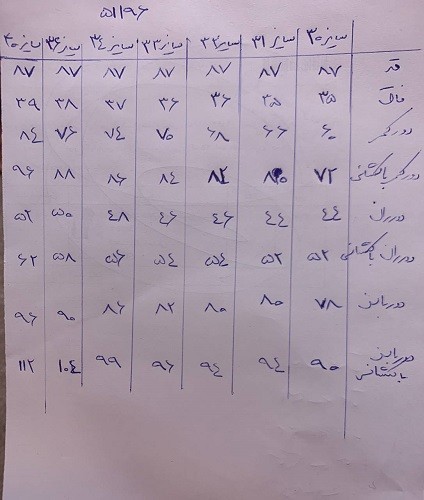 ۵۱۱۹۶
سایز ۳۰ سایز ۳۱ سایز ۳۲ سایز ۳۳ سایز ۳۴ سایز ۳۶ سایز ۴۰
قد ۸۷ ۸۷ ۸۷ ۸۷ ۸۷ ۸۷ ۸۷
فاق ۳۵ ۳۵ ۳۶ ۳۶ ۳۷ ۳۸ ۳۹
دور کمر ۶۰ ۶۶ ۶۸ ۷۰ ۷۴ ۷۶ ۸۴
دور کمر باکشانی ۷۲ ۸۰ ۸۲ ۸۴ ۸۶ ۸۸ ۹۶
دور ران ۴۴ ۴۴ ۴۶ ۴۶ ۴۸ ۵۰ ۵۲
دور ران باکشانی ۵۲ ۵۲ ۵۴ ۵۴ ۵۶ ۵۸ ۶۲
دور باسن ۷۸ ۸۰ ۸۰ ۸۲ ۸۶ ۹۰ ۹۶
دور باسن باکشانی ۹۰ ۹۴ ۹۴ ۹۶ ۹۹ ۱۰۴ ۱۱۲